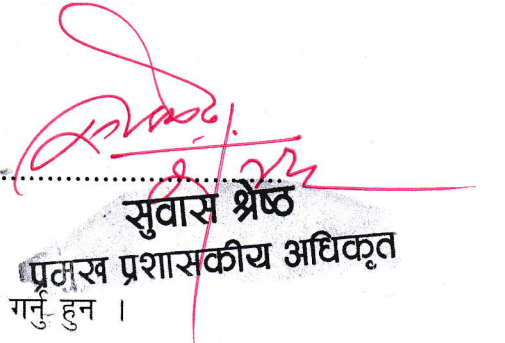 सुवास श्रेष्ठ
प्रमुख प्रशासकीय अधिकृत
गर्नु हुन ।